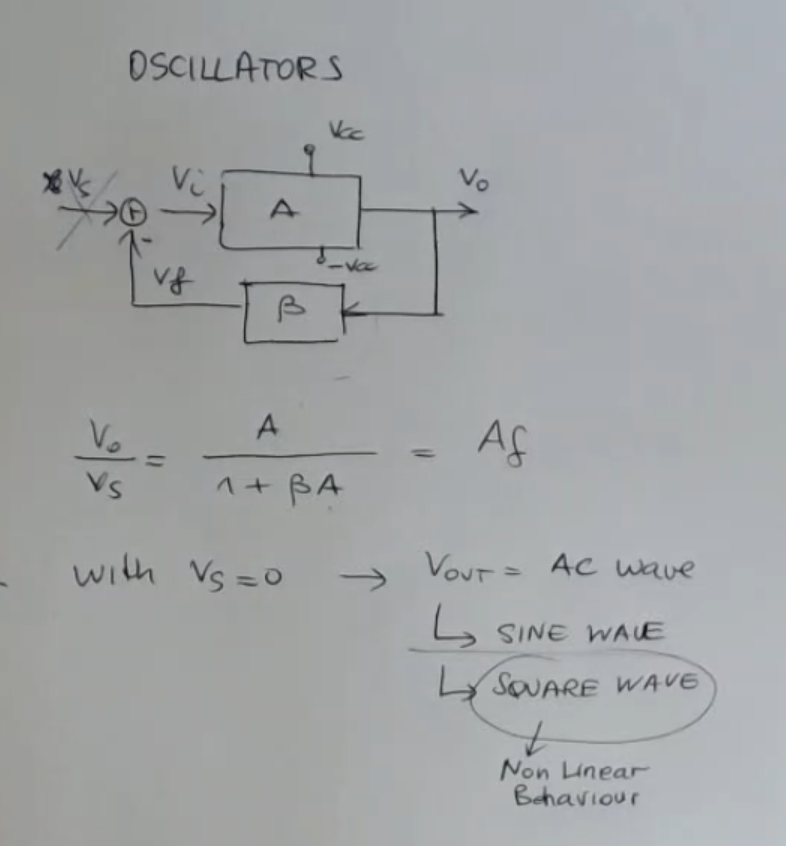 OSCILLATORS
Vcc
Vs
Vi
Vo
+
A
-
-Vcc
Vf
β
Vo/Vs = A/(1 + βA) = Af
With Vs = 0 → VOUT = AC Wave
↳ SINE WAVE
↳ SQUARE WAVE
↓
Non Linear
Behaviour